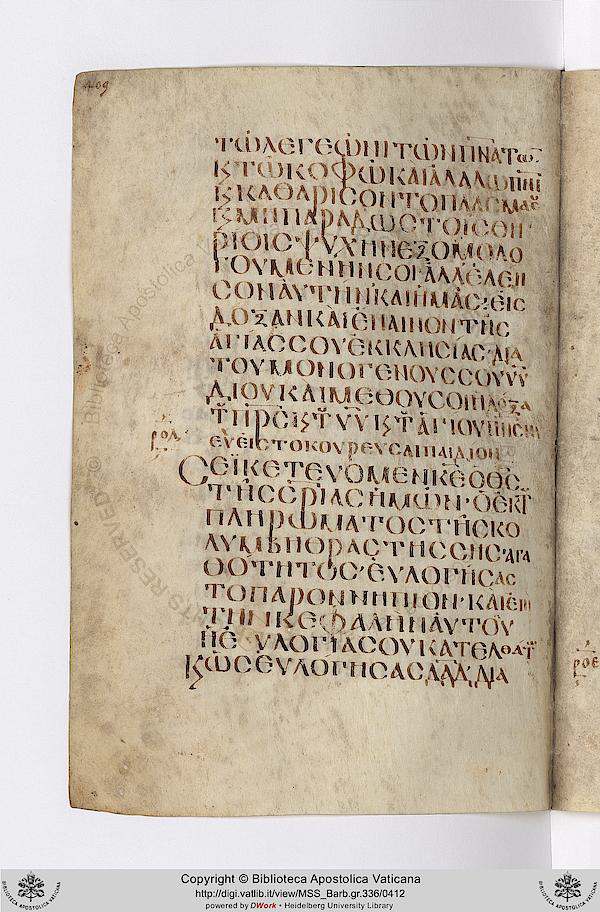 409
ΤῶΛΕΓΕῶΝΙΤῶΝΠΝΑΤω
ϗΤῶΚΟΦῶΚΑΙΑΛΑΛΩΠΝΙ
ϗΚΑΘΑΡΙCΟΝΤΟΠΛΑCΜΑ
ϗΜΗΠΑΡΑΔῶCΤΟΙCΘΗ
ΡΙΟΙCΨΥΧΗΝΕΞΟΜΟΛΟ
ΓΟΥΜΕΝΗΝCΟΙΑΛΛΕΛΕΗ
CΟΝΑΥΤΗΝΚΑΙΗΜΑC·ΕΙC
ΔΟΞΑΝΚΑΙΕΠΑΙΝΟΝΤΗC
ΑΓΙΑCCΟΥΕΚΚΛΗCΙΑC·ΔΙΑ
ΤΟΥΜΟΝΟΓΕΝΟΥCCΟΥΥΥ
ΔΙΟΥΚΑΙΜΕΘΟΥCΟΙΗΔΟΞΑ
ΤΠΡCϗΤΥΥϗΤΑΓΙΟΥΠΝC
ρολ
ΕΥΕΙCΤΟΚΟΥΡΕΥCΑΙΠΑΙΔΙΟΝ
CΕΙΚΕΤΕΥΟΜΕΝΚΕΟΘC
ΤΗCCΡΙΑCΗΜῶΝ·ΟΕΚΤ
ΠΛΗΡΩΜΑΤΟCΤΗCΚΟ
ΛΥΜΒΗΘΡΑCΤΗCCΗC·ΑΓΑ
ΘΟΤΗΤΟC·ΕΥΛΟΓΗCΑC
ΤΟΠΑΡΟΝΝΗΠΙΟΝ·ΚΑΙΕΠΙ
ΤΗΝΚΕΦΑΛΗΝΑΥΤΟΥ
ΗΕΥΛΟΓΙΑCΟΥΚΑΤΕΛΘΑΤ
ϗῶCΕΥΛΟΓΗCΑCΔΑΔΔΙΑ
ροε
Copyright © Biblioteca Apostolica Vaticana
http://digi.vatlib.it/view/MSS_Barb.gr.336/0412
powered by DWork • Heidelberg University Library